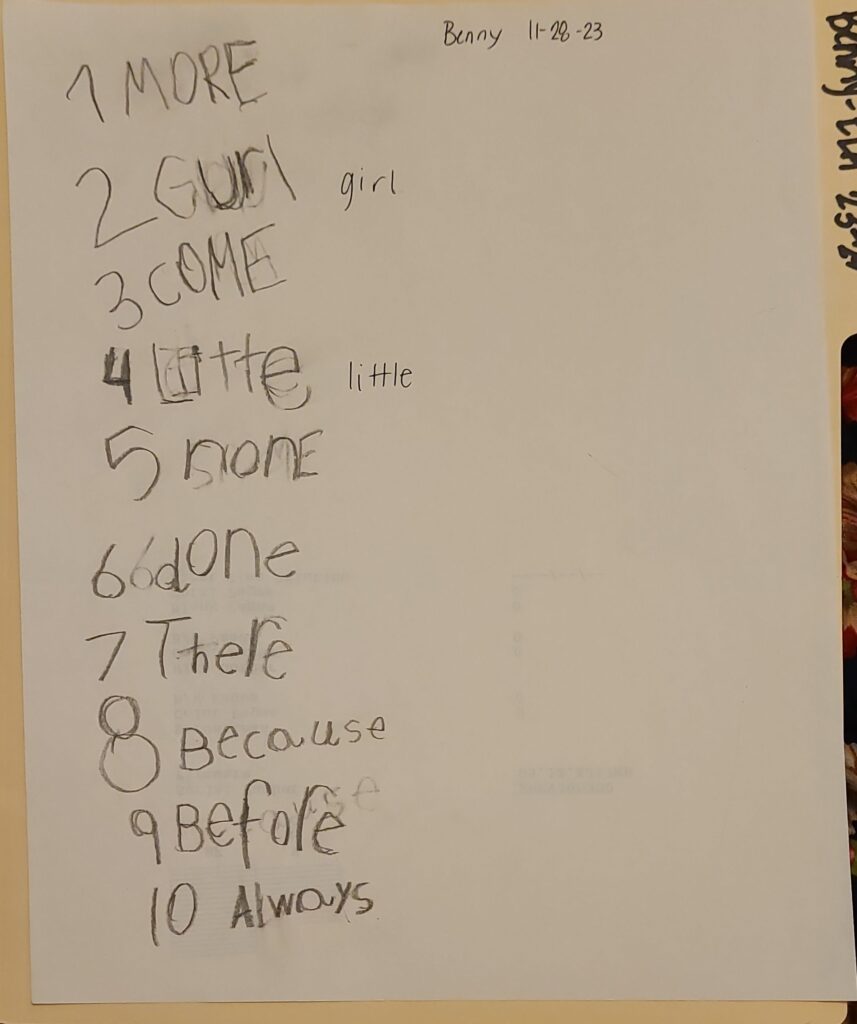 Benny 11-28-23
1 MORE
2 Gurl girl
3 COME
4 Litte little
5 nonE
6 6 done
7 There
8 Because
9 Before
10 Always